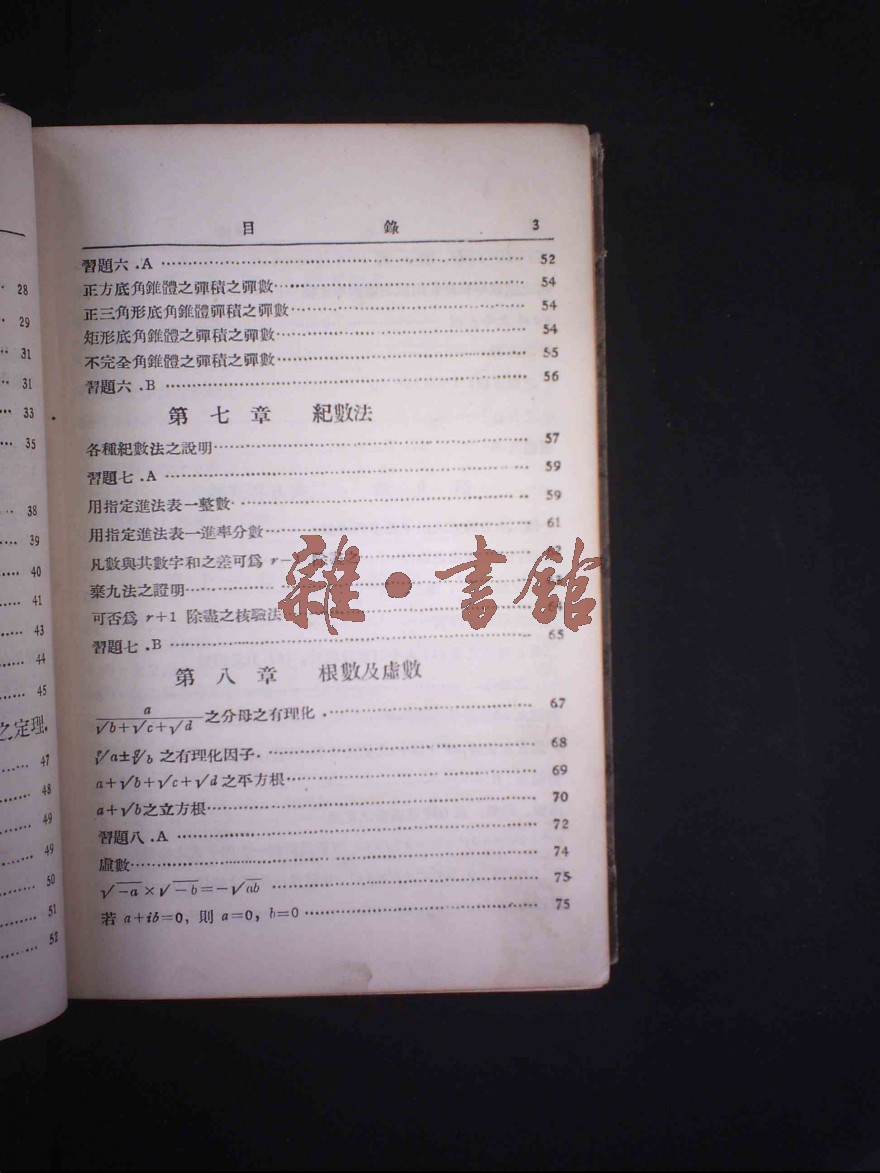 28
29
31
31
33
35
38
39
40
41
43
44
45
之定理.
47
48
49
49
50
51
52
目 錄 3
習題六 .A 52
正方底角錐體之彈積之彈數 54
正三角形底角錐體彈積之彈數 54
矩形底角錐體之彈積之彈數 54
不完全角錐體之彈積之彈數 55
習題六 .B 56
第七章 紀數法
各種紀數法之說明 57
習題七 .A 59
用指定進法表一整數 59
用指定進法表一進率分數 61
凡數與其數字和之差可爲 r−
棄九法之證明
可否爲 r+1 除盡之核驗法
習題七 .B 65
雜·書館
第八章 根數及虛數
a/(√b+√c+√d) 之分母之有理化 67
ᵖ√a±ᑫ√b 之有理化因子 68
a+√b+√c+√d 之平方根 69
a+√b之立方根 70
習題八 .A 72
虛數 74
√−a×√−b=−√ab 75
若 a+ib=0, 則 a=0, b=0 75